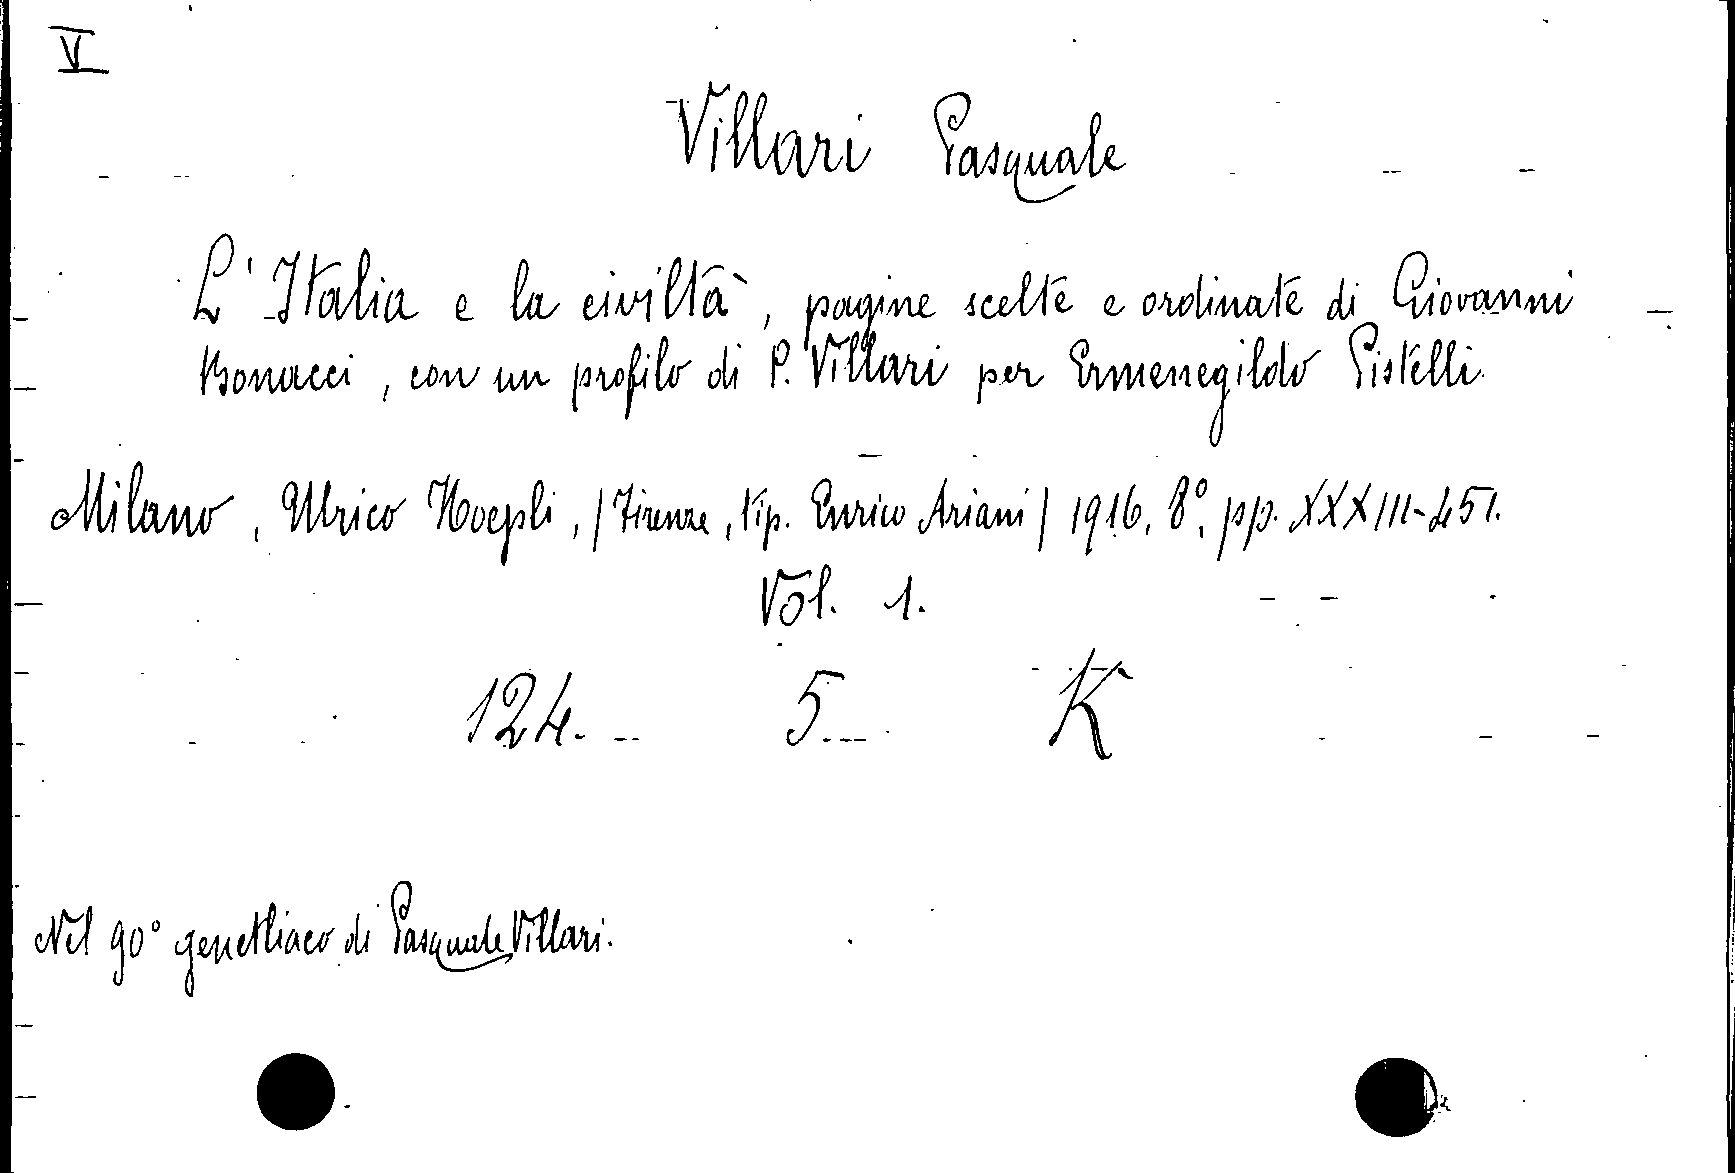 V
Villari Pasquale
L'Italia e la civiltà, pagine scelte e ordinate di Giovanni
Bonacci, con un profilo di P. Villari per Ermenegildo Pistelli.
Milano, Ulrico Hoepli, (Firenze, tip. Enrico Ariani) 1916, 8°, pp. XXXIII-451.
Vol. 1.
124. 5 K
Nel 90° genetliaco di Pasquale Villari.